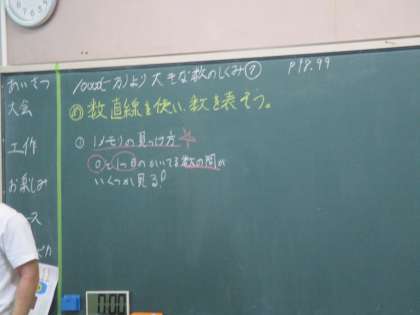 あいさつ
大会
工作
お楽しみ
10000(一万)より大きな数のしくみ⑦ P98.99
め 数直線を使い、数を表そう。
① 1メモリの見つけ方
0と1つ目のかいてる数の間が
いくつか見る!
00